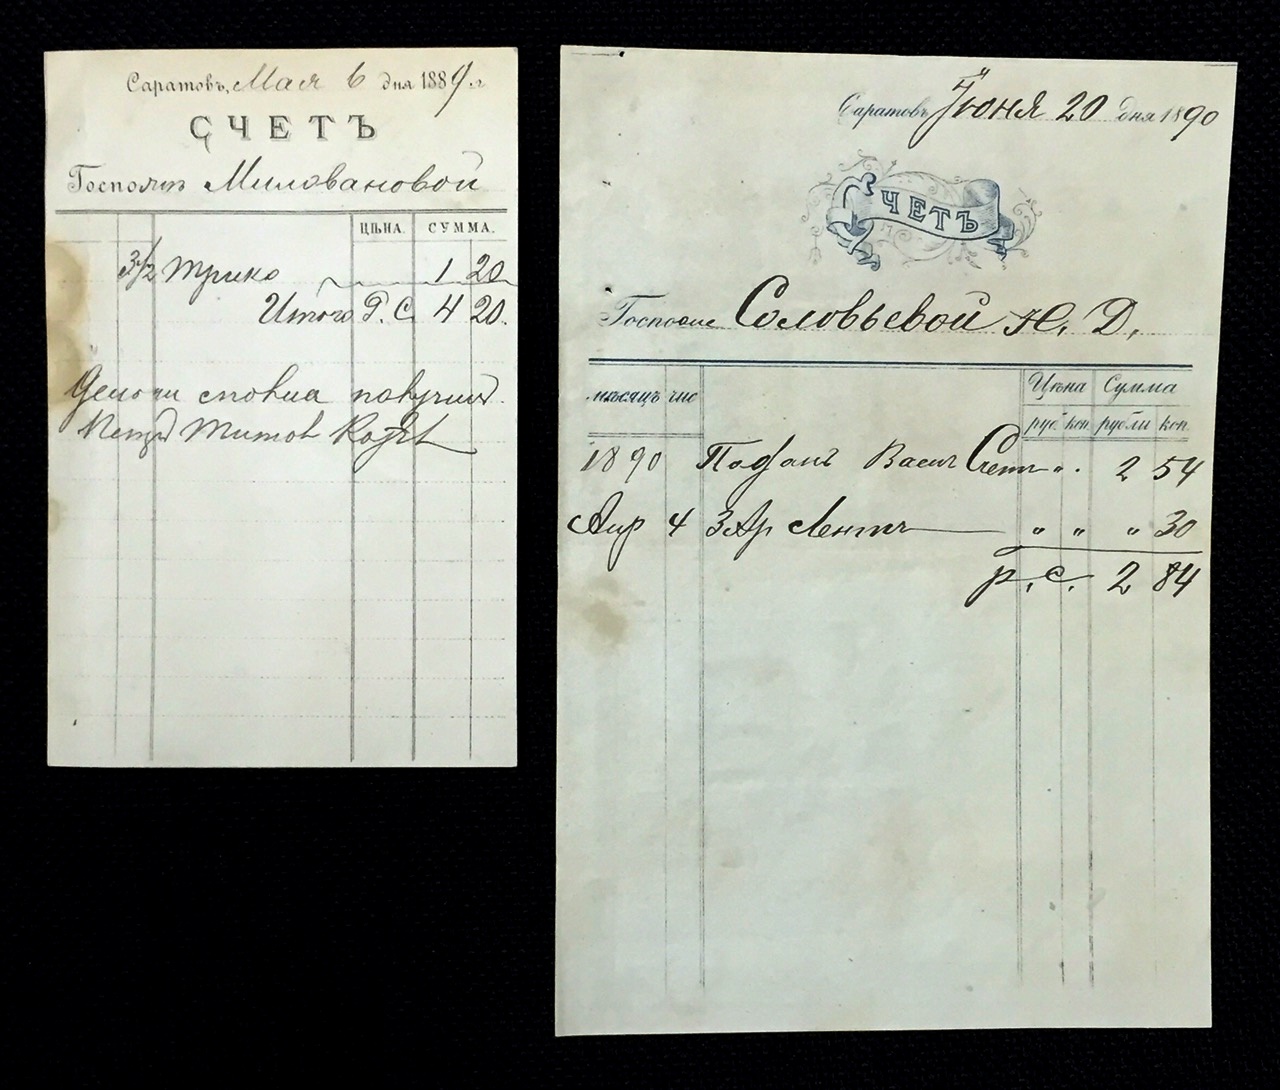 Саратовъ, Мая 6 дня 1889 г.
СЧЕТЪ
Миловановой
ЦѢНА. СУММА.
3 1/2 трико 1 20
Итого Р. С. 4 20.
Деньги сполна получилъ
Петръ Титов
Саратовъ Іюня 20 дня 1890
СЧЕТЪ
Госпоже Соловьевой Н. Д.
мѣсяцъ чис Цѣна Сумма
руб. коп. рубли коп.
1890 По Счету 2 54
Апр 4 3 Ар Ленты " " " 30
р. с. 2 84